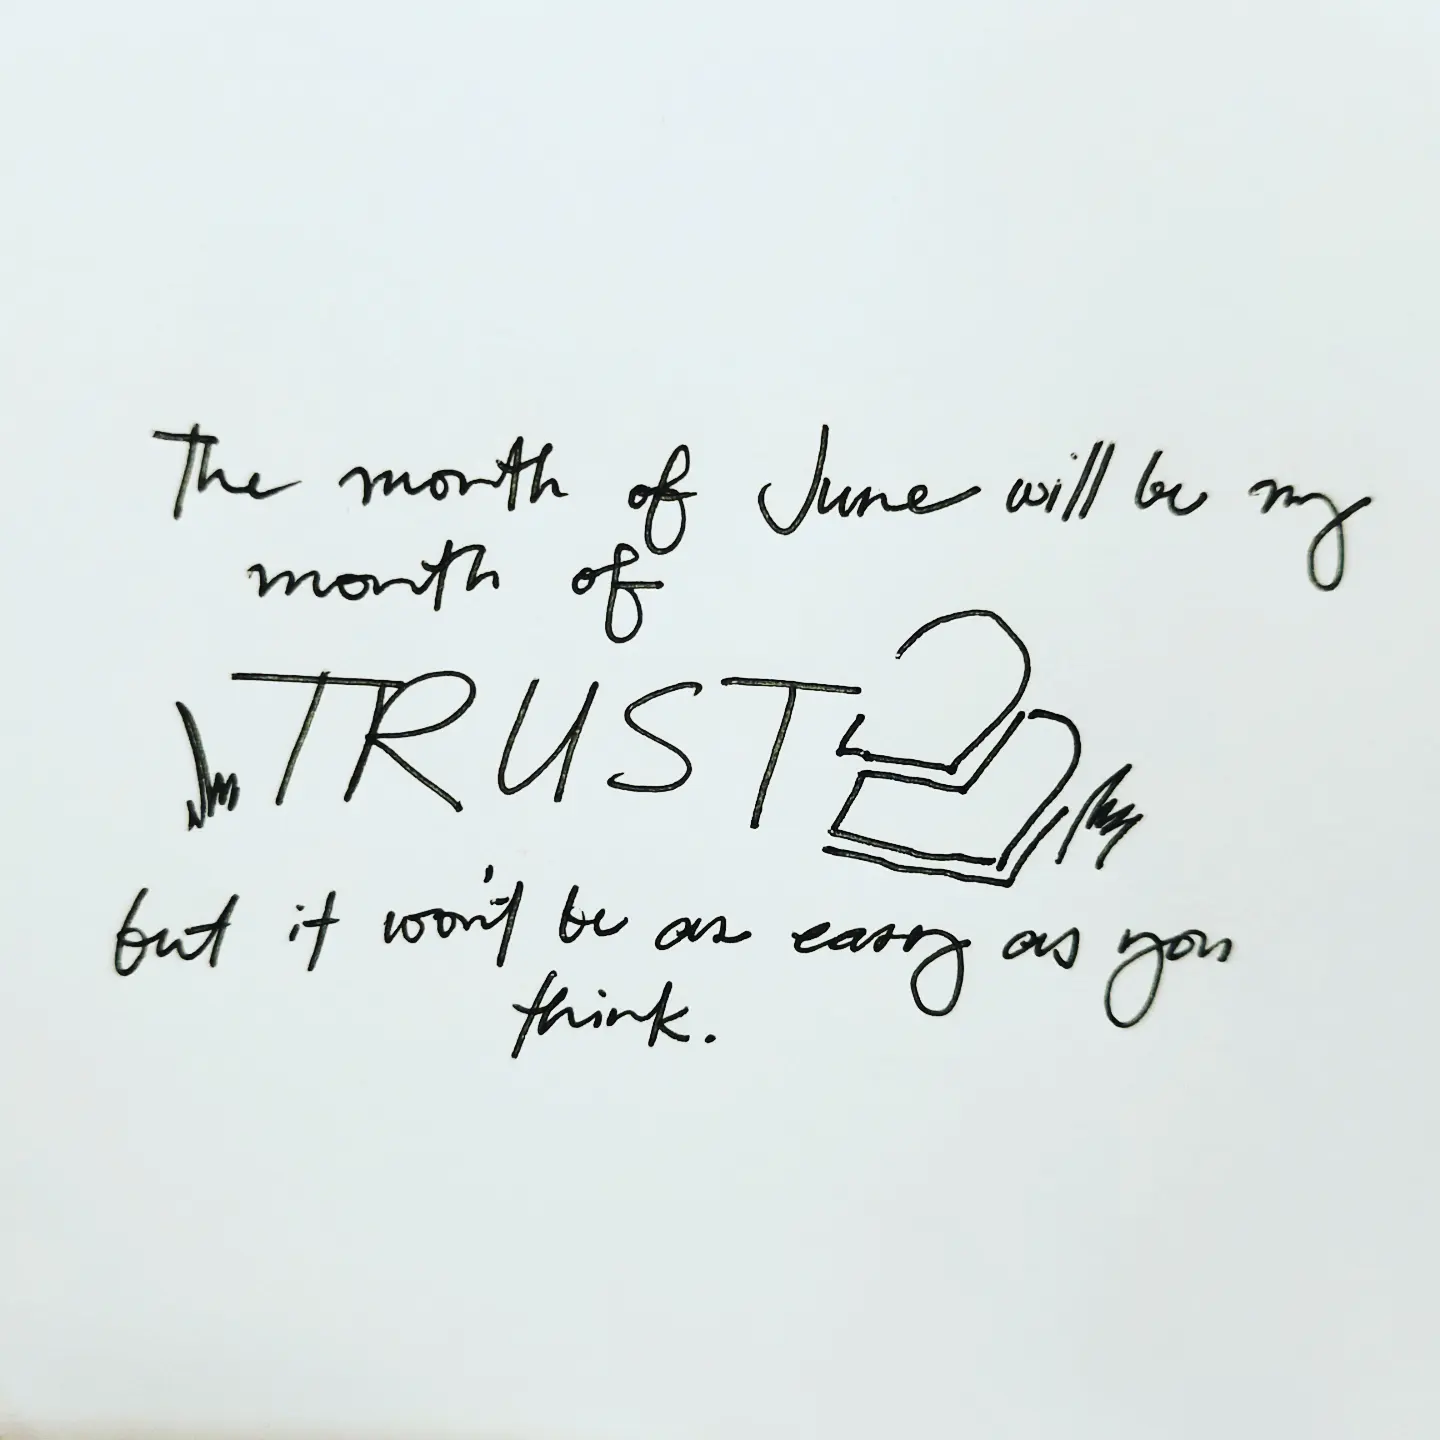 The month of June will be my
month of
TRUST
but it won't be as easy as you
think.